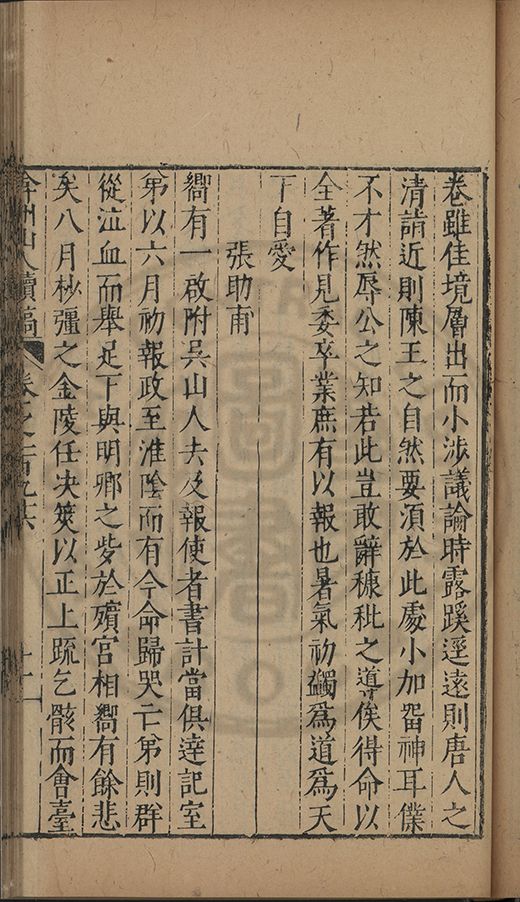 卷雖佳境層出而小涉議論時露蹊逕遠則唐人之
清綺近則陳王之自然要須於此處小加畱神耳僕
不才然辱公之知若此豈敢辭穅秕之導俟得命以
全著作見委卒業庶有以報也暑氣初蠲爲道爲天
下自愛
張助甫
嚮有一啟附吳山人去及報使者書計當俱達記室
弟以六月初報政至淮陰而有今命歸哭亡弟則群
從泣血而舉足下與明卿之訾於殯宮相嚮有餘悲
矣八月杪彊之金陵任決筴以正上疏乞骸而會臺
弇州山人續稿 卷之一百九十六 十一